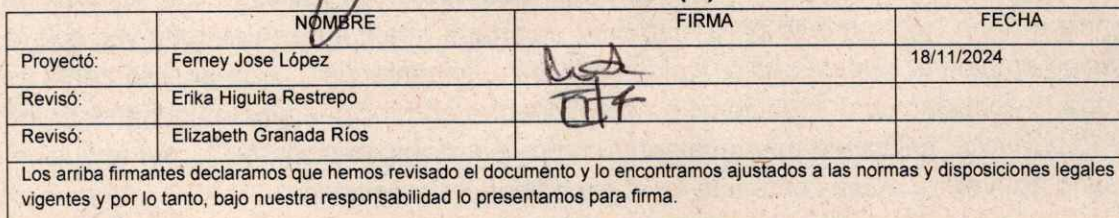 NOMBRE FIRMA FECHA
Proyectó: Ferney Jose López 18/11/2024
Revisó: Erika Higuita Restrepo
Revisó: Elizabeth Granada Ríos
Los arriba firmantes declaramos que hemos revisado el documento y lo encontramos ajustados a las normas y disposiciones legales
vigentes y por lo tanto, bajo nuestra responsabilidad lo presentamos para firma.